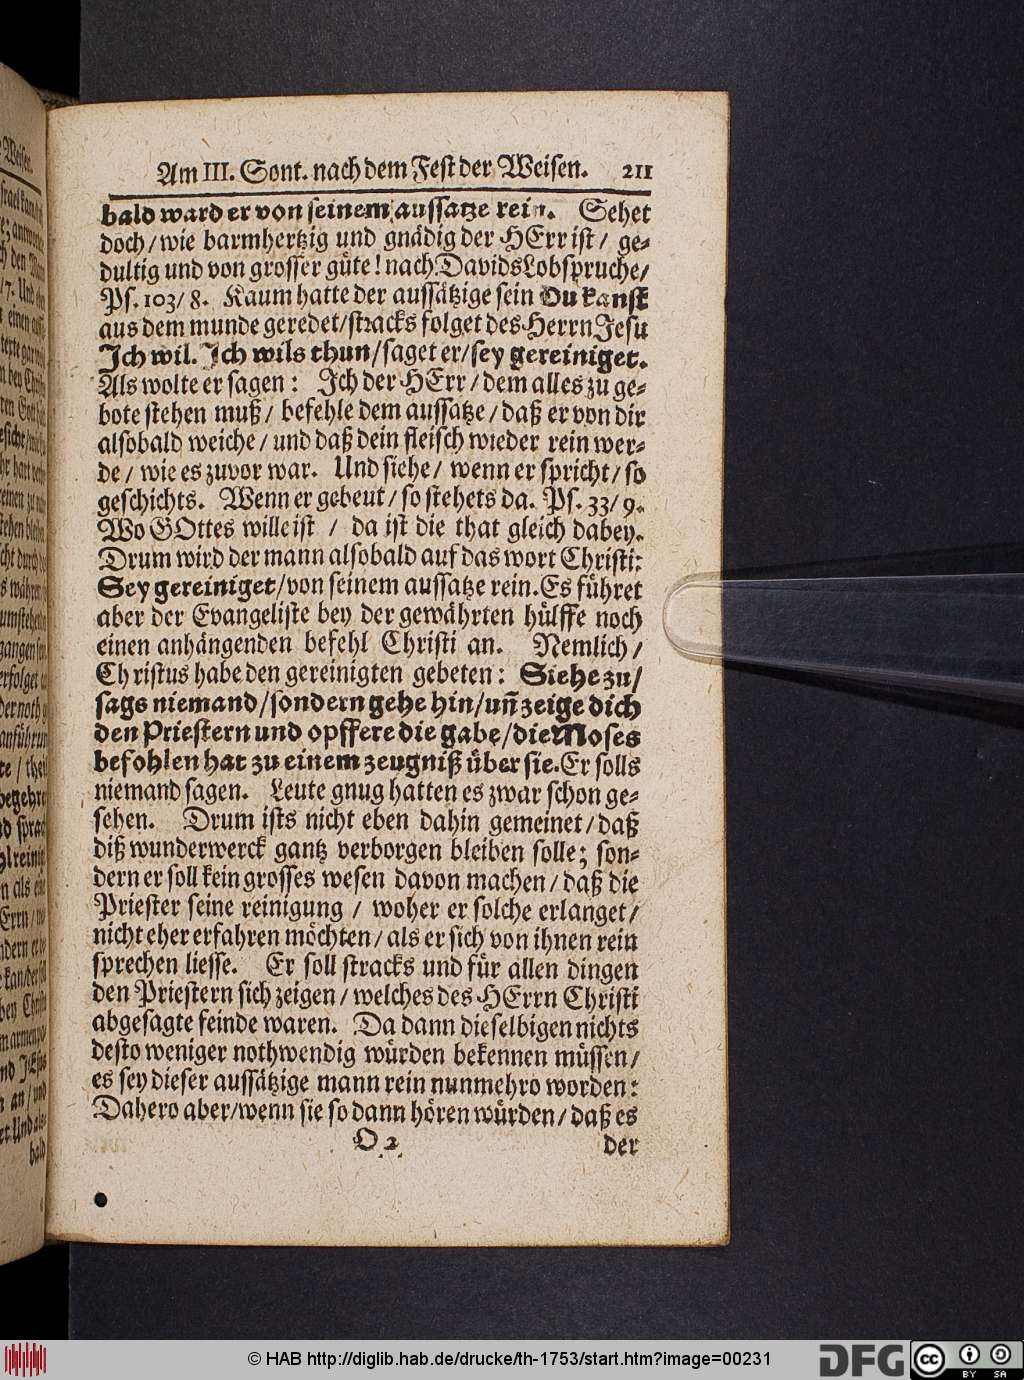 Am III. Sont. nach dem Fest der Weisen. 211
bald ward er von seinem aussatze rein. Sehet
doch / wie barmhertzig und gnädig der HErr ist / ge-
dultig und von grosser güte! nach Davids Lobspruche /
Ps. 103 / 8. Kaum hatte der aussätzige sein Du kanst
aus dem munde geredet / stracks folget des Herrn Jesu
Ich wil. Ich wils thun / saget er / sey gereiniget.
Als wolte er sagen: Ich der HErr / dem alles zu ge-
bote stehen muß / befehle dem aussatze / daß er von dir
alsobald weiche / und daß dein fleisch wieder rein wer-
de / wie es zuvor war. Und siehe / wenn er spricht / so
geschichts. Wenn er gebeut / so stehets da. Ps. 33 / 9.
Wo GOttes wille ist / da ist die that gleich dabey.
Drum wird der mann alsobald auf das wort Christi:
Sey gereiniget / von seinem aussatze rein. Es führet
aber der Evangeliste bey der gewährten hülffe noch
einen anhängenden befehl Christi an. Nemlich /
Christus habe den gereinigten gebeten: Siehe zu /
sags niemand / sondern gehe hin / uñ zeige dich
den Priestern und opffere die gabe / die Moses
befohlen hat zu einem zeugniß über sie. Er solls
niemand sagen. Leute gnug hatten es zwar schon ge-
sehen. Drum ists nicht eben dahin gemeinet / daß
diß wunderwerck gantz verborgen bleiben solle; son-
dern er soll kein grosses wesen davon machen / daß die
Priester seine reinigung / woher er solche erlanget /
nicht eher erfahren möchten / als er sich von ihnen rein
sprechen liesse. Er soll stracks und für allen dingen
den Priestern sich zeigen / welches des HErrn Christi
abgesagte feinde waren. Da dann dieselbigen nichts
desto weniger nothwendig würden bekennen müssen /
es sey dieser aussätzige mann rein nunmehro worden:
Dahero aber / wenn sie so dann hören würden / daß es
O 2 der
© HAB http://diglib.hab.de/drucke/th-1753/start.htm?image=00231
DFG
cc BY SA